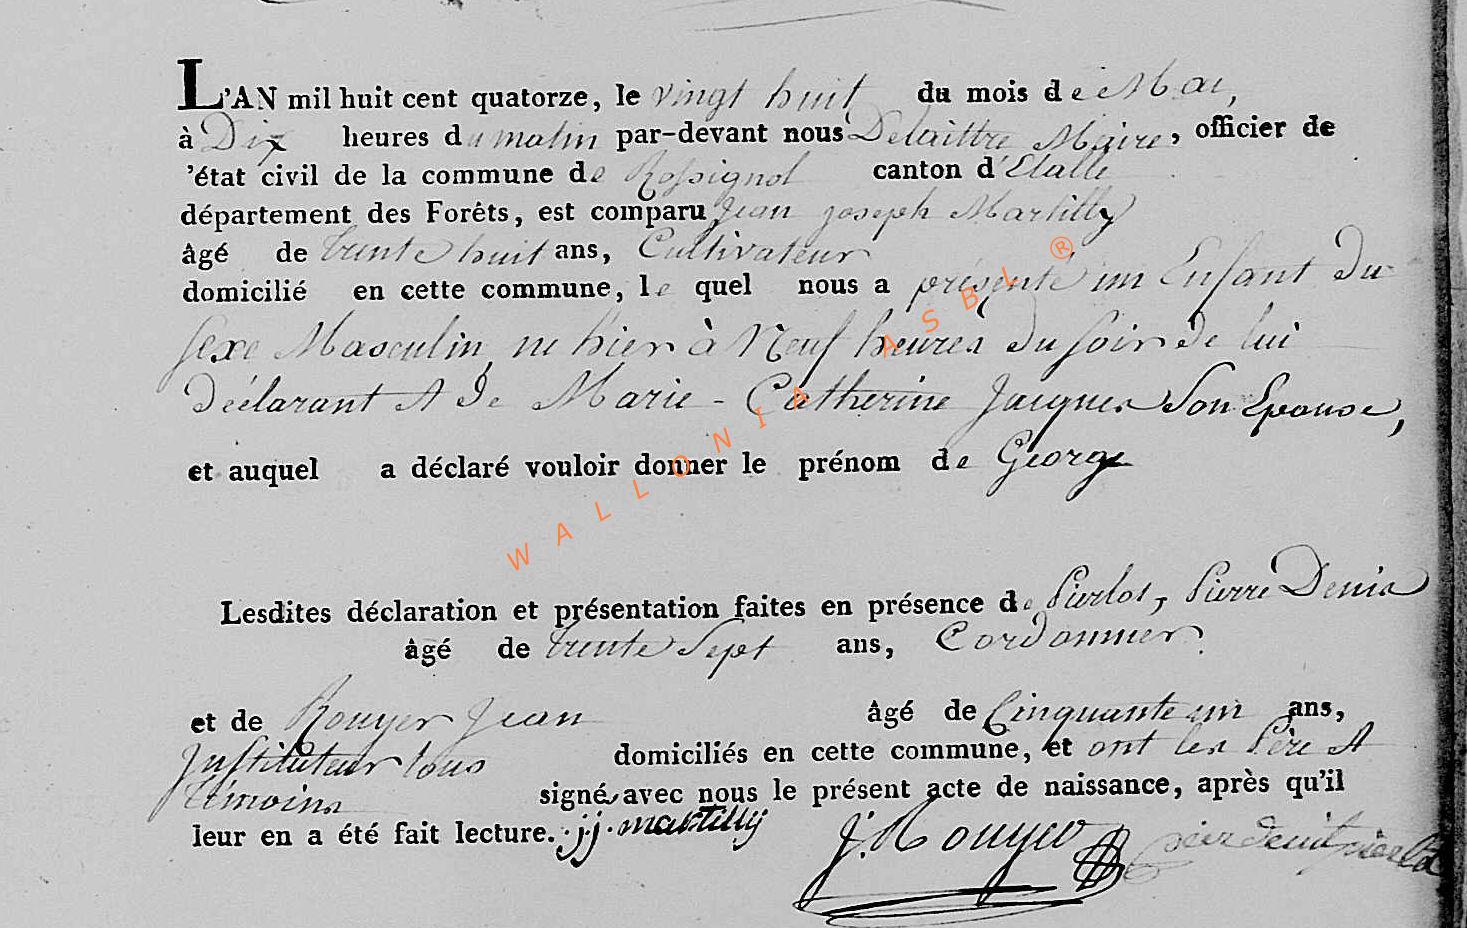 L'AN mil huit cent quatorze, le vingt huit du mois de Mai,
à Dix heures du matin par-devant nous Delaittre Maire, officier de
'état civil de la commune de Rossignol canton d'Etalle
département des Forêts, est comparu Jean joseph Martilly
âgé de trente huit ans, Cultivateur
domicilié en cette commune, le quel nous a présenté un Enfant Du
sexe Masculin, né hier à Neuf heures du soir de lui
Déclarant et De Marie - Catherine Jacques Son Epouse,
et auquel a déclaré vouloir donner le prénom de George
Lesdites déclaration et présentation faites en présence de Pierlot, Pierre Denis
âgé de trente Sept ans, Cordonnier
et de Rouyer Jean âgé de Cinquante un ans,
Instituteur tous domiciliés en cette commune, et ont les Père et
témoins signés avec nous le présent acte de naissance, après qu'il
leur en a été fait lecture. j.j. martilly J. Rouyer
WALLONIA ASBL ®